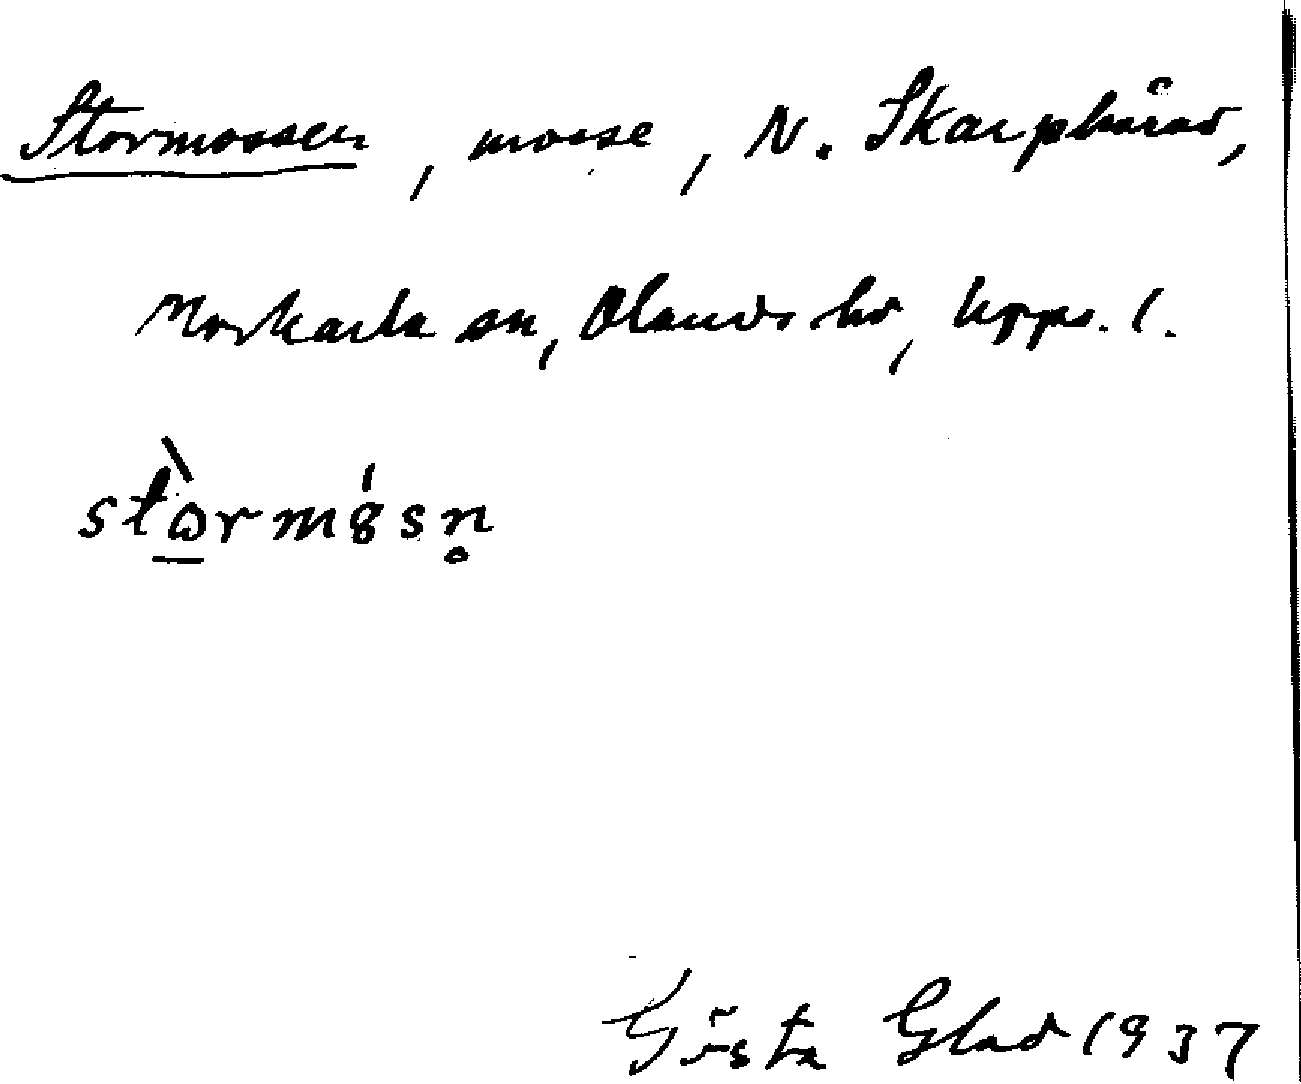 Stormossen, mosse, N. Skarphärad,
Morkarla sn, Olands hd, Upps. l.
Gösta Glad 1937